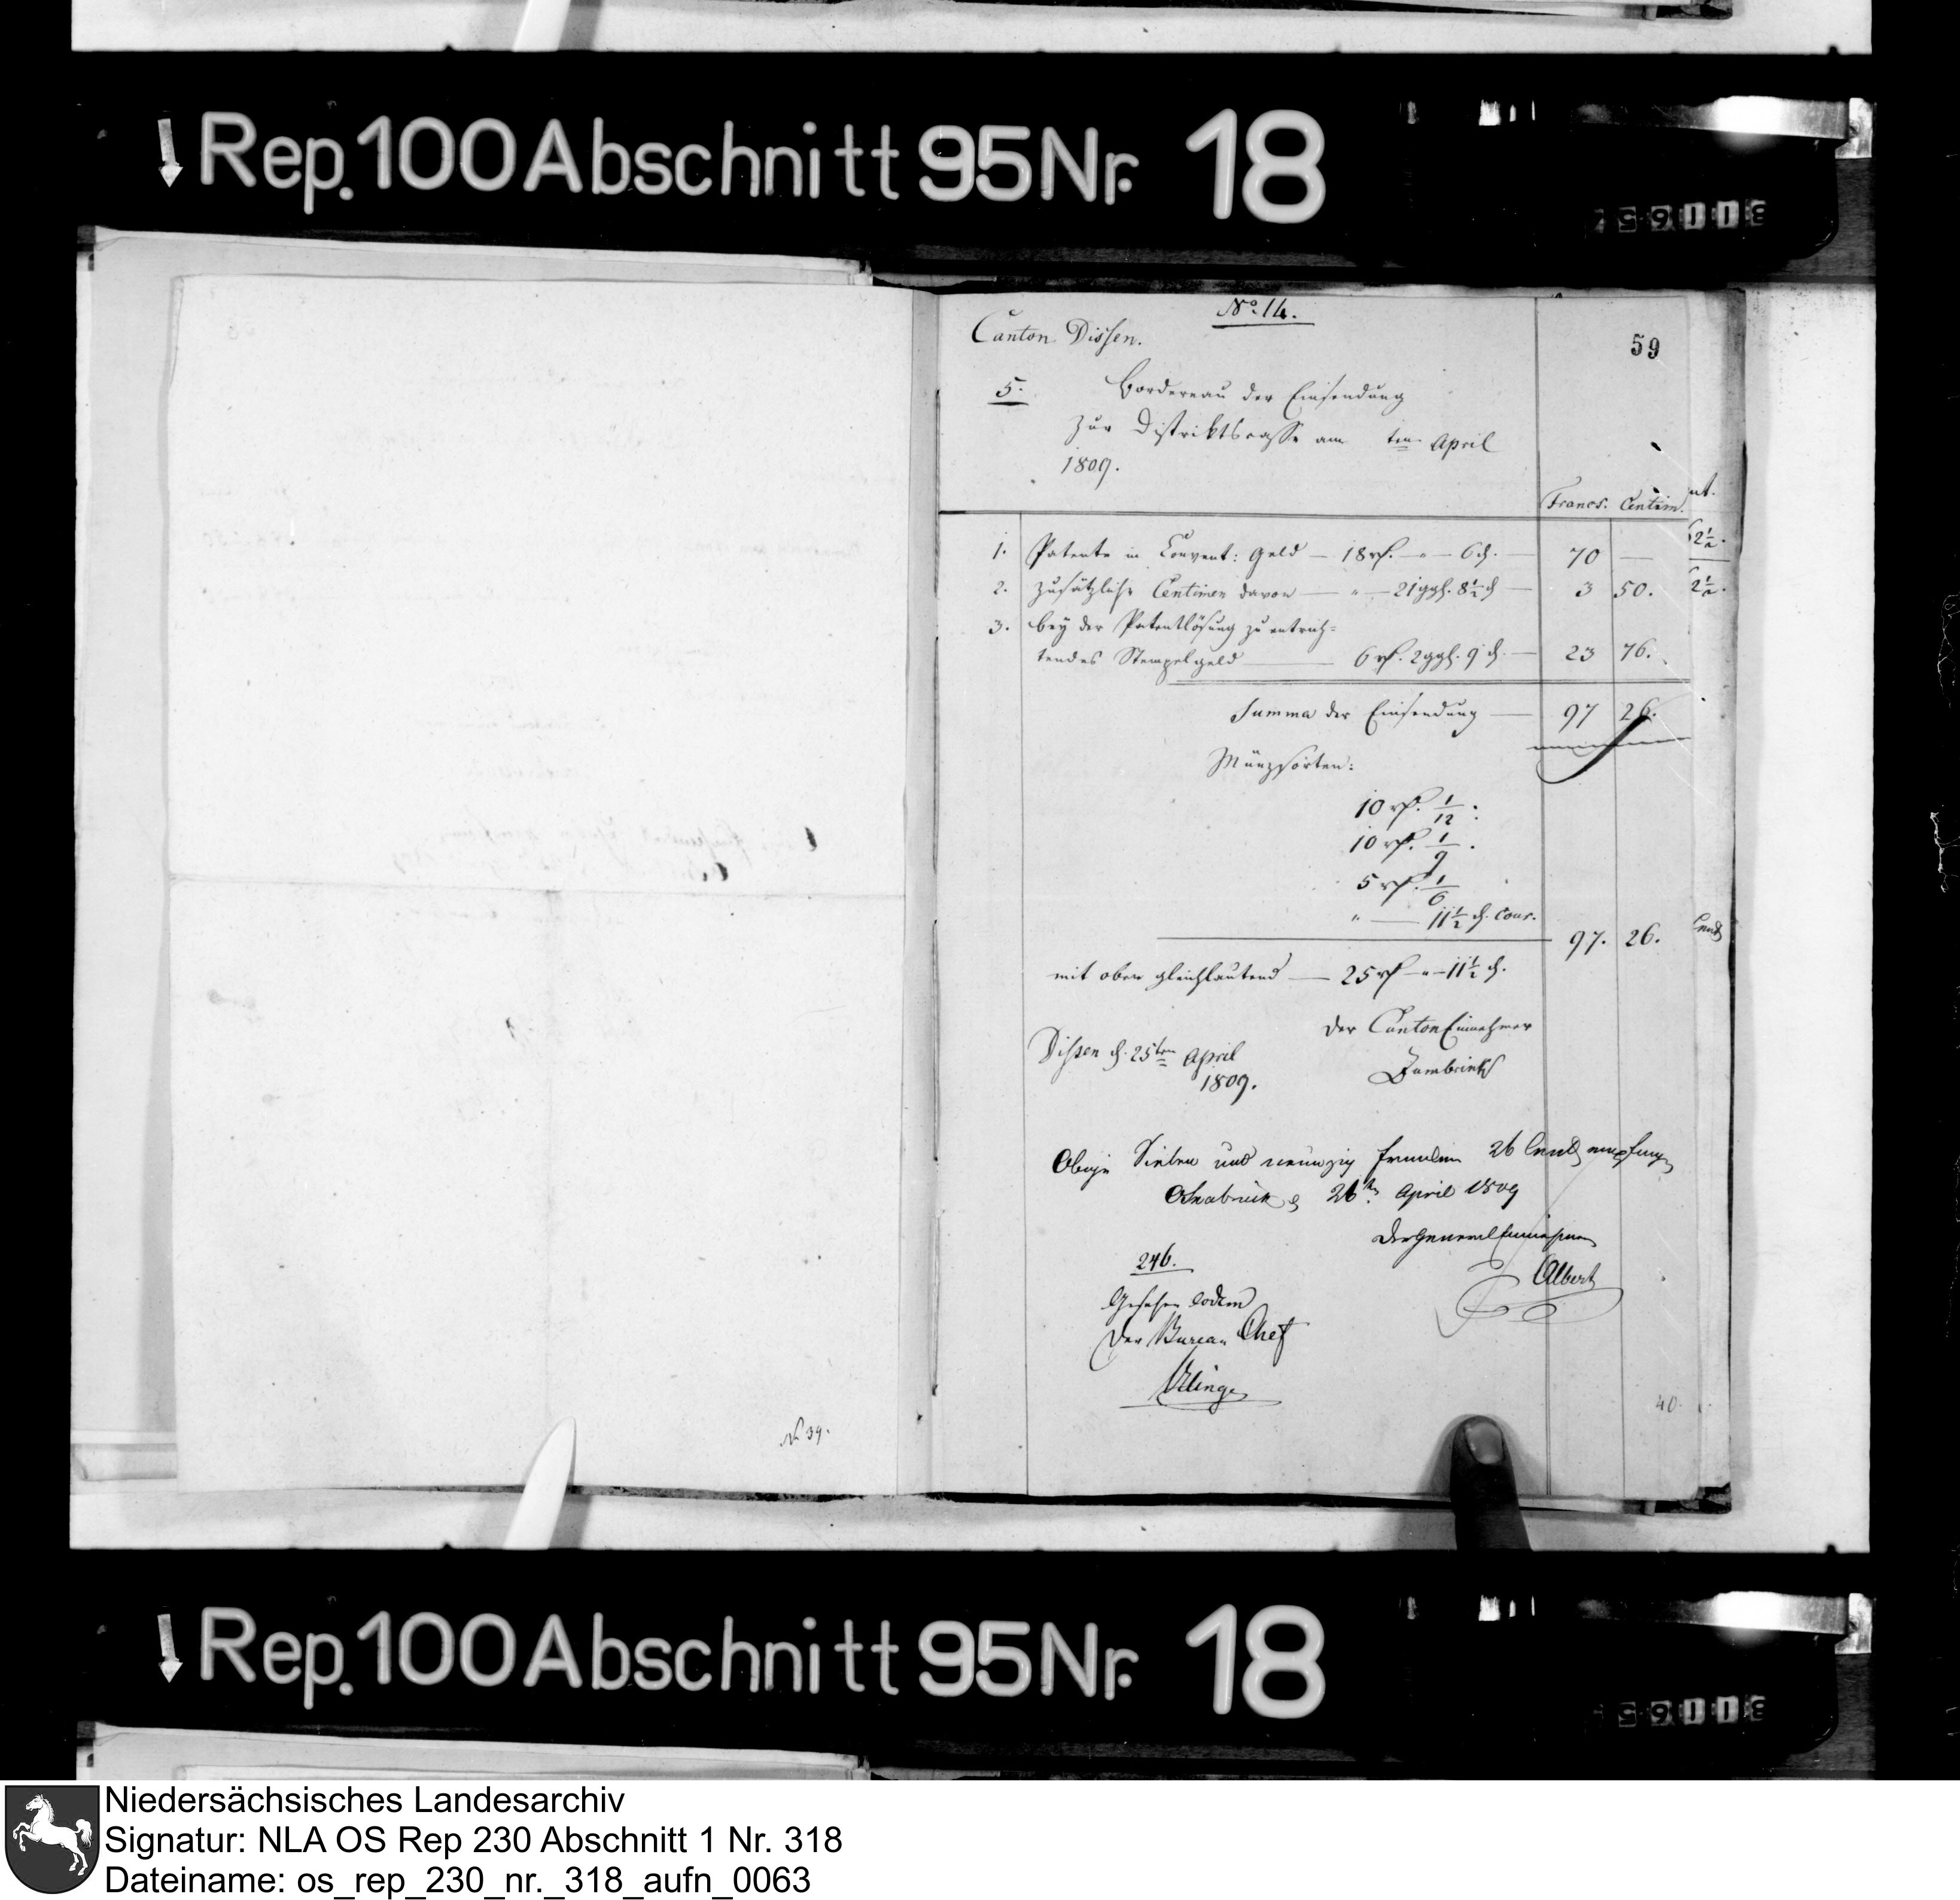 Rep. 100 Abschnitt 95 Nr. 18
No. 14.
59
Canton Dissen.
5. Bordereau der Einsendung
zur Distriktscasse am ten April
1809.
Francs. Centim.
1. Patente in Convent: Geld — 18 rth. — " — 6 d. — 70 —
2. zusätzliche Centimen davon — " — 21 ggl. 8½ d — 3 50.
3. bey der Patentlösung zu entrich=
tendes Stempelgeld — 6 rth. 2 ggl. 9 d. — 23 76.
Summa der Einsendung — 97 26.
Münzsorten:
10 rth. 1/12.
10 rth. 1/9.
5 rth. 1/6
" — 11½ d. Cour.
97. 26.
mit oben gleichlautend — 25 rth — " — 11½ d.
Der Canton Einnehmer
Dissen d. 25ten April
1809.
Obige Sieben und neunzig Franken 26 Cent empfangen
Osnabrück d 26ten April 1809
Der General Einnehmer
Albert
246.
Gesehen eodem
Der Bureau Chef
40.
No 39.
Rep. 100 Abschnitt 95 Nr. 18
Niedersächsisches Landesarchiv
Signatur: NLA OS Rep 230 Abschnitt 1 Nr. 318
Dateiname: os_rep_230_nr._318_aufn_0063